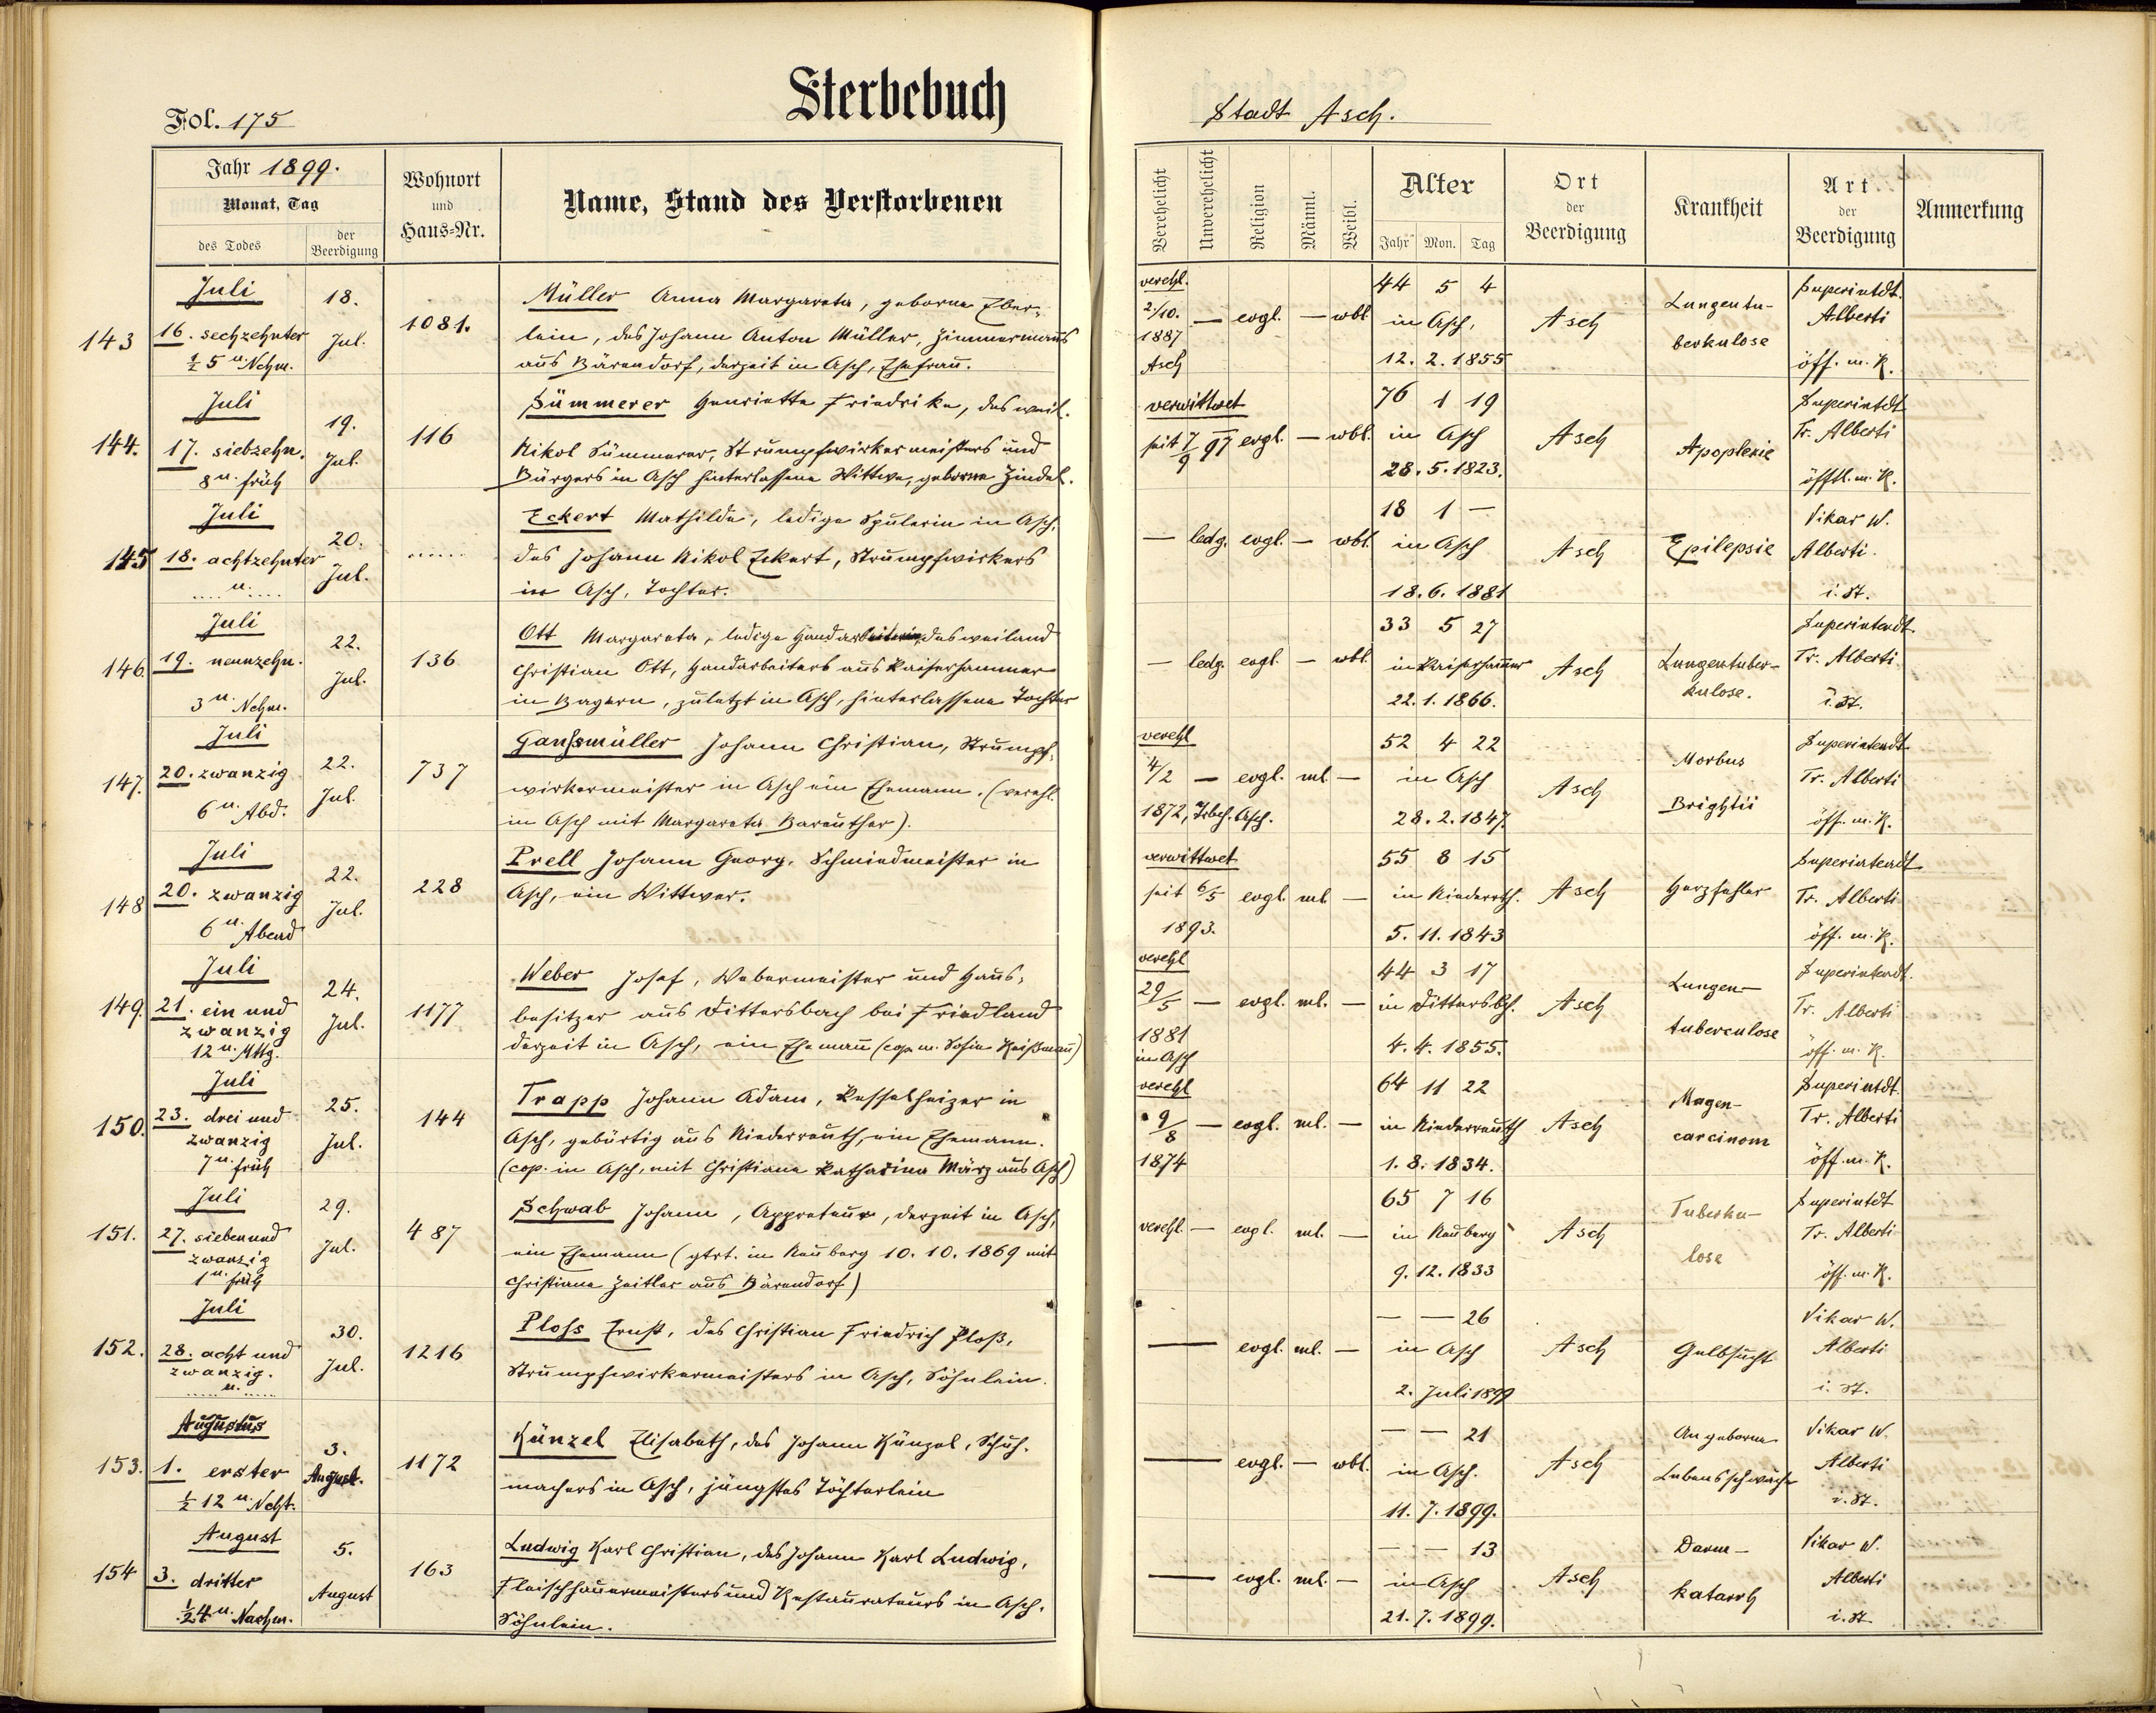 Fol. 175
Sterbebuch
Stadt Asch.
Jahr 1899.
Monat, Tag
des Todes
der
Beerdigung
Wohnort
und
Haus-Nr.
Name, Stand des Verstorbenen
Verehelicht
Unverehelicht
Religion
Männl.
Weibl.
Alter
Jahr Mon. Tag
Ort
der
Beerdigung
Krankheit
Art
der
Beerdigung
Anmerkung
143
Juli
16. sechzehnter
½ 5 u. Nchm.
18.
Jul.
1081.
Müller Anna Margareta, geborne Eber-
lein, des Johann Anton Müller, Zimmermanns
aus Bärendorf, derzeit in Asch, Ehefrau.
verehl.
2/10.
1887
Asch
— evgl. — wbl.
44 5 4
in Asch,
12. 2. 1855
Asch
Lungentu-
berkulose
Superintdt.
Alberti
öff. m. R.
144.
Juli
17. siebzehn.
8 u. früh
19.
Jul.
116
Sümmerer Henriette Friedrike, des weil.
Nikol Sümmerer, Strumpfwirkermeisters und
Bürgers in Asch hinterlassene Wittwe, geborne Zindel.
verwittwet
seit 7/9 97 evgl. — wbl.
76 1 19
in Asch
28. 5. 1823.
Asch
Apoplexie
Superintdt
Tr. Alberti
öfftl. m. R.
145
Juli
18. achtzehnter
.... u. ....
20.
Jul.
......
Eckert Mathilde, ledige Spulerin in Asch,
des Johann Nikol Eckert, Strumpfwirkers
in Asch, Tochter.
— ledg. evgl. — wbl.
18 1 —
in Asch
18. 6. 1881
Asch
Epilepsie
Vikar W.
Alberti.
i. St.
146.
Juli
19. neunzehn.
3 u. Nchm.
22.
Jul.
136
Ott Margareta, ledige Handarbeiterin, des weiland
Christian Ott, Handarbeiters aus Kaiserhammer
in Bayern, zuletzt in Asch, hinterlassene Tochter
— ledg. evgl. — wbl.
33 5 27
in Kaiserhammer
22. 1. 1866.
Asch
Lungentuber-
kulose.
Superintendt.
Tr. Alberti
i. St.
147.
Juli
20. zwanzig
6 u. Abd.
22.
Jul.
737
Ganssmüller Johann Christian, Strumpf-
wirkermeister in Asch ein Ehemann, (verehl.
in Asch mit Margareta Bareuther).
verehl
4/2
1872, Asch.
— evgl. ml. —
52 4 22
in Asch
28. 2. 1847.
Asch
Morbus
Brightii
Superintendt
Tr. Alberti
öff. m. R.
148
Juli
20. zwanzig
6 u. Abend
22.
Jul.
228
Prell Johann Georg, Schmiedmeister in
Asch, ein Wittwer.
verwittwet
seit 6/5
1893.
evgl. ml. —
55 8 15
in Niederrth.
5. 11. 1843
Asch
Herzfehler
Superintendt
Tr. Alberti
öff. m. R.
149.
Juli
21. ein und
zwanzig
12 u. Mttg.
24.
Jul.
1177
Weber Josef, Webermeister und Haus-
besitzer aus Dittersbach bei Friedland
derzeit in Asch, ein Ehemann (cop. m. Sofie Reißmann)
verehl
29/5
1881
in Asch
— evgl. ml. —
44 3 17
in Dittersbch.
4. 4. 1855.
Asch
Lungen-
tuberculose
Superintendt.
Tr. Alberti
öff. m. R.
150.
Juli
23. drei und
zwanzig
7 u. früh
25.
Jul.
144
Trapp Johann Adam, Kesselheizer in
Asch, gebürtig aus Niederreuth, ein Ehemann.
(cop. in Asch, mit Christiane Katharina März aus Asch)
verehl
9/8
1874
— evgl. ml. —
64 11 22
in Niederreuth
1. 8. 1834.
Asch
Magen-
carcinom
Superintdt.
Tr. Alberti
öff. m. R.
151.
Juli
27. sieben und
zwanzig
1 u. früh
29.
Jul.
487
Schwab Johann, Appreteur, derzeit in Asch,
ein Ehemann (gtrt. in Neuberg 10. 10. 1869 mit
Christiane Zeitler aus Bärendorf)
verehl. — evgl. ml. —
65 7 16
in Neuberg
9. 12. 1833
Asch
Tuberku-
lose
Superintdt
Tr. Alberti
öff. m. R.
152.
Juli
28. acht und
zwanzig.
..... u. .....
30.
Jul.
1216
Ploss Ernst, des Christian Friedrich Ploß,
Strumpfwirkermeisters in Asch, Söhnlein.
— evgl. ml. —
— — 26
in Asch
2. Juli 1899
Asch
Gelbsucht
Vikar W.
Alberti
i. St.
153.
Augustus
1. erster
½ 12 u. Ncht.
3.
August.
1172
Künzel Elisabeth, des Johann Künzel, Schuh-
machers in Asch, jüngstes Töchterlein
— evgl. — wbl.
— — 21
in Asch.
11. 7. 1899.
Asch
Angeborne
Lebensschwäche
Vikar W.
Alberti
i. St.
154
August
3. dritter
½ 4 u. Nachm.
5.
August
163
Ludwig Karl Christian, des Johann Karl Ludwig,
Fleischhauermeisters und Restaurateurs in Asch,
Söhnlein.
— evgl. ml. —
— — 13
in Asch
21. 7. 1899.
Asch
Darm-
katarrh
Vikar W.
Alberti
i. St.